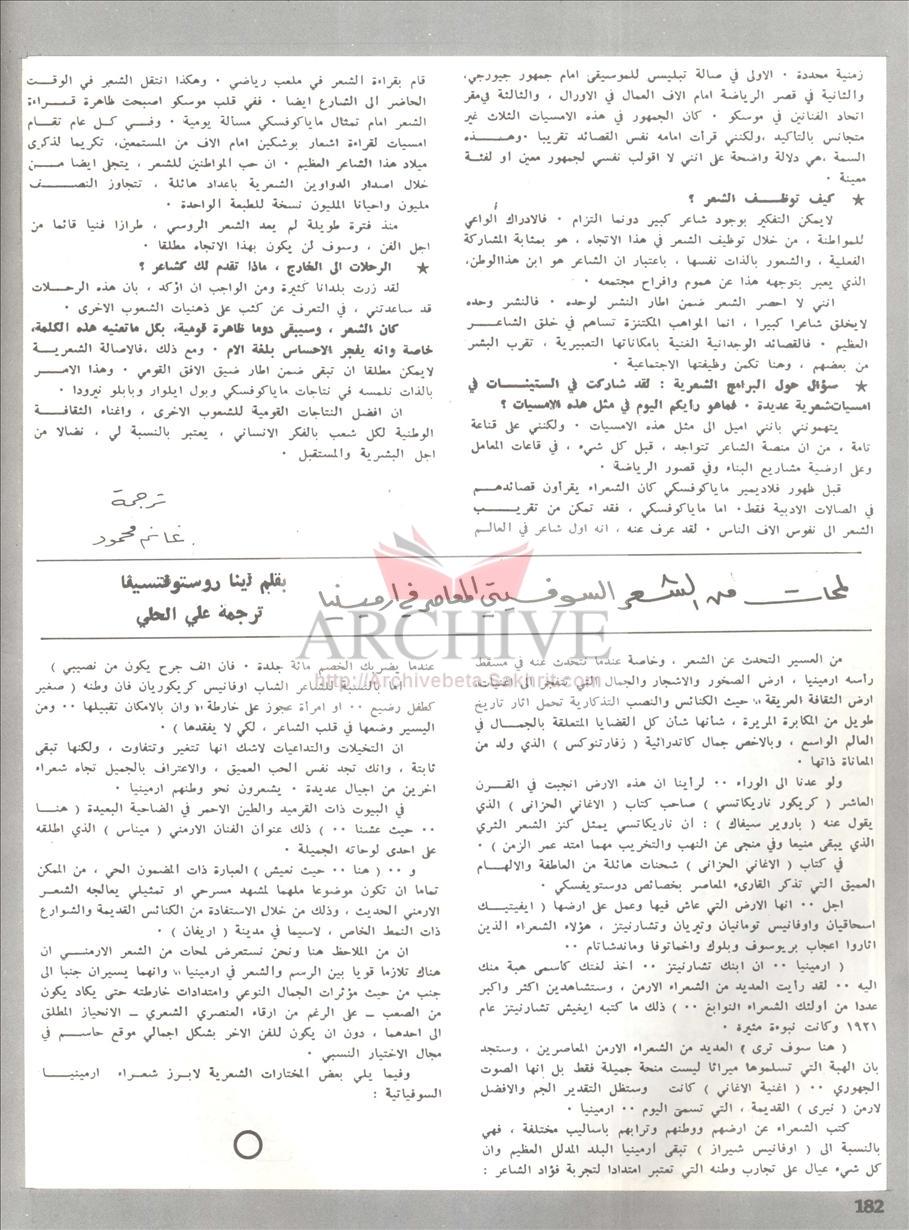 زمنية محددة ٠ الاولى في صالة تبليسي للموسيقى امام جمهور جيورجي،
والثانية في قصر الرياضة امام الاف العمال في الاورال ، والثالثة في مقر
اتحاد الفنانين في موسكو ٠ كان الجمهور في هذه الامسيات الثلاث غير
متجانس بالتأكيد ،ولكنني قرأت امامه نفس القصائد تقريبا ٠وهـــذه
السمة ،هي دلالة واضحة على انني لا اقولب نفسي لجمهور معين او لفئة
معينة ٠
★ كيف توظــف الشعر ؟
لايمكن التفكير بوجود شاعر كبير دونما التزام ٠ فالادراك الواعي
للمواطنة ، من خلال توظيف الشعر في هذا الاتجاه ، هو بمثابة المشاركة
الفعلية ، والشعور بالذات نفسها ، باعتبار ان الشاعر هو ابن هذاالوطن،
الذي يعبر بتوجهه هذا عن هموم وافراح مجتمعه ٠
انني لا احصر الشعر ضمن اطار النشر لوحده ٠ فالنشر وحده
لايخلق شاعرا كبيرا ، انما المواهب المكتنزة تساهم في خلق الشاعـــر
العظيم ٠ فالقصائد الوجدانية الغنية بامكاناتها التعبيرية ، تقرب البشر
من بعضهم ، وهنا تكمن وظيفتها الاجتماعية ٠
★ سؤال حول البرامج الشعرية : لقد شاركت في الستينـــات في
امسياتشعرية عديدة ٠ فماهو رأيكم اليوم في مثل هذه الامسيات ؟
يتهمونني بانني اميل الى مثل هذه الامسيات ٠ ولكنني على قناعة
تامة ، من ان منصة الشاعر تتواجد ، قبل كل شيء ، في قاعات المعامل
وعلى ارضية مشاريع البناء وفي قصور الرياضة ٠
قبل ظهور فلاديمير ماياكوفسكي كان الشعراء يقرأون قصائدهــم
في الصالات الادبية فقط٠ اما ماياكوفسكي ، فقد تمكن من تقريــب
الشعر الى نفوس الاف الناس ٠ لقد عرف عنه ، انه اول شاعر في العالـم
قام بقراءة الشعر في ملعب رياضي ٠ وهكذا انتقل الشعر في الوقــت
الحاضر الى الشارع ايضا ٠ ففي قلب موسكو اصبحت ظاهرة قـــراءة
الشعر امام تمثال ماياكوفسكي مسألة يومية ٠ وفــي كل عام تقــام
امسيات لقراءة اشعار بوشكين امام الاف من المستمعين، تكريما لذكرى
ميلاد هذا الشاعر العظيم ٠ ان حب المواطنين للشعر ، يتجلى ايضا مــن
خلال اصدار الدواوين الشعرية باعداد هائلة ، تتجاوز النصـــف
مليون واحيانا المليون نسخة للطبعة الواحدة ٠
منذ فترة طويلة لم يعد الشعر الروسي ، طرازا فنيا قائما من
اجل الفن ، وسوف لن يكون بهذا الاتجاه مطلقا ٠
★ الرحلات الى الخارج ، ماذا تقدم لك كشاعر ؟
لقد زرت بلدانا كثيرة ومن الواجب ان اؤكد ، بان هذه الرحــلات
قد ساعدتني ، في التعرف عن كثب على ذهنيات الشعوب الاخرى ٠
كان الشعر ، وسيبقى دوما ظاهرة قومية، بكل ماتعنيه هذه الكلمة،
خاصة وانه يفجر الاحساس بلغة الام ٠ ومع ذلك ،فالاصالة الشعريــة
لايمكن مطلقا ان تبقى ضمن اطار ضيق الافق القومي ٠ وهذا الامــر
بالذات نلمسه في نتاجات ماياكوفسكي وبول ايلوار وبابلو نيرودا ٠
ان افضل النتاجات القومية للشعوب الاخرى ، واغناء الثقافــة
الوطنية لكل شعب بالفكر الانساني ، يعتبر بالنسبة لي ، نضالا من
اجل البشرية والمستقبل ٠
ترجمة
غانم محمود
لمحات من الشعر السوفيتي المعاصر في ارمينيا
بقلم نينا روستوفتسيفا
ترجمة علي الحلي
ARCHIVE
http://Archivebeta.Sakhrit.com
من العسير التحدث عن الشعر ، وخاصة عندما نتحدث عنه في مسقط
رأسه ارمينيا ، ارض الصخور والاشجار والجمال
ارض الثقافة العريقة ٠٠ حيث الكنائس والنصب التذكارية تحمل اثار تاريخ
طويل من المكابرة المريرة ، شأنها شأن كل القضايا المتعلقة بالجمــال في
العالم الواسع ، وبالاخص جمال كاتدرائية ( زفارتنوكس ) الذي ولد من
المعاناة ذاتها ٠
ولو عدنا الى الوراء ٠٠ لرأينا ان هذه الارض انجبت في القـــرن
العاشر ( كريكور ناريكاتسي ) صاحب كتاب ( الاغاني الحزانى ) الذي
يقول عنه ( باروير سيفاك ) : ان ناريكاتسي يمثل كنز الشعر الثري
الذي يبقى منيعا وفي منجى عن النهب والتخريب مهما امتد عمر الزمن ) ٠
في كتاب ( الاغاني الحزانى ) شحنات هائلة من العاطفة والالهــام
العميق التي تذكر القارىء المعاصر بخصائص دوستويفسكي ٠
اجل ٠٠ انها الارض التي عاش فيها وعمل على ارضها ( ايفيتيــك
اسحاقيان واوفانيس تومانيان وتيريان وتشارنيتز ، هؤلاء الشعراء الذين
اثاروا اعجاب بريوسوف وبلوك واخماتوفا وماندشتام ٠٠
( ارمينيا ٠٠ ان ابنك تشارنيتز ٠٠ أخذ لغتك كاسمى هبة منك
اليه ٠٠ لقد رأيت العديد من الشعراء الارمن ، وستشاهدين اكثر واكبر
عددا من اولئك الشعراء النوابغ ٠٠ ) ذلك ما كتبه ايغيش تشارنيتز عام
١٩٢١ وكانت نبوءة مثيرة ٠
( هنا سوف ترى ) العديد من الشعراء الارمن المعاصرين ، وستجد
بان الهبة التي تسلموها ميراثا ليست منحة جميلة فقط بل إنها الصوت
الجهوري ٠٠ ( اغنية الاغاني ) كانت وستظل التقدير الجم والافضل
لارمن ( نيرى ) القديمة ، التي تسمى اليوم ٠٠ ارمينيا ٠
كتب الشعراء عن ارضهم ووطنهم وترابهم باساليب مختلفة ، فهي
بالنسبة الى ( اوفانيس شيراز ) تبقى أرمينيا البلد المدلل العظيم وان
كل شيء عيال على تجارب وطنه التي تعتبر امتدادا لتجربة فؤاد الشاعر :
عندما يضربك الخصم مائة جلدة ٠ فان الف جرح يكون من نصيبي )
اما بالنسبة للشاعر الشاب اوفانيس كريكوريان فان وطنه ( صغير
كطفل رضيع ٠٠ او امرأة عجوز على خارطة ٠٠ وان بالامكان تقبيلها ٠٠ ومن
اليسير وضعها في قلب الشاعر ، لكي لا يفقدها )
ان التخيلات والتداعيات لاشك انها تتغير وتتفاوت ، ولكنها تبقى
ثابتة ، وانك تجد نفس الحب العميق ، والاعتراف بالجميل تجاه شعراء
اخرين من اجيال عديدة ٠ يشعرون نحو وطنهم ارمينيا ٠
في البيوت ذات القرميد والطين الاحمر في الضاحية البعيدة ( هنــا
٠٠ حيث عشنا ٠٠ ) ذلك عنوان الفنان الارمني ( ميناس ) الذي اطلقه
على احدى لوحاته الجميلة ٠
و ٠٠ ( هنا ٠٠ حيث نعيش ) العبارة ذات المضمون الحي ، من الممكن
تماما ان تكون موضوعا ملهما لمشهد مسرحي او تمثيلي يعالجه الشعــر
الارمني الحديث ، وذلك من خلال الاستفادة من الكنائس القديمة والشوارع
ذات النمط الخاص ، لاسيما في مدينة ( اريفان ) ٠
ان من الملاحظ هنا ونحن نستعرض لمحات من الشعر الارمنــي ان
هناك تلازما قويا بين الرسم والشعر في ارمينيا ٠٠ وانهما يسيران جنبا الى
جنب من حيث مؤثرات الجمال النوعي وامتدادات خارطته حتى يكاد يكون
من الصعب ــ على الرغم من ارقاء العنصري الشعري ــ الانحياز المطلق
الى احدهما ، دون ان يكون للفن الاخر بشكل اجمالي موقع حاســم في
مجال الاختيار النسبي ٠
وفيما يلي بعض المختارات الشعرية لابرز شعـراء ارمينيــا
السوفياتية :
182